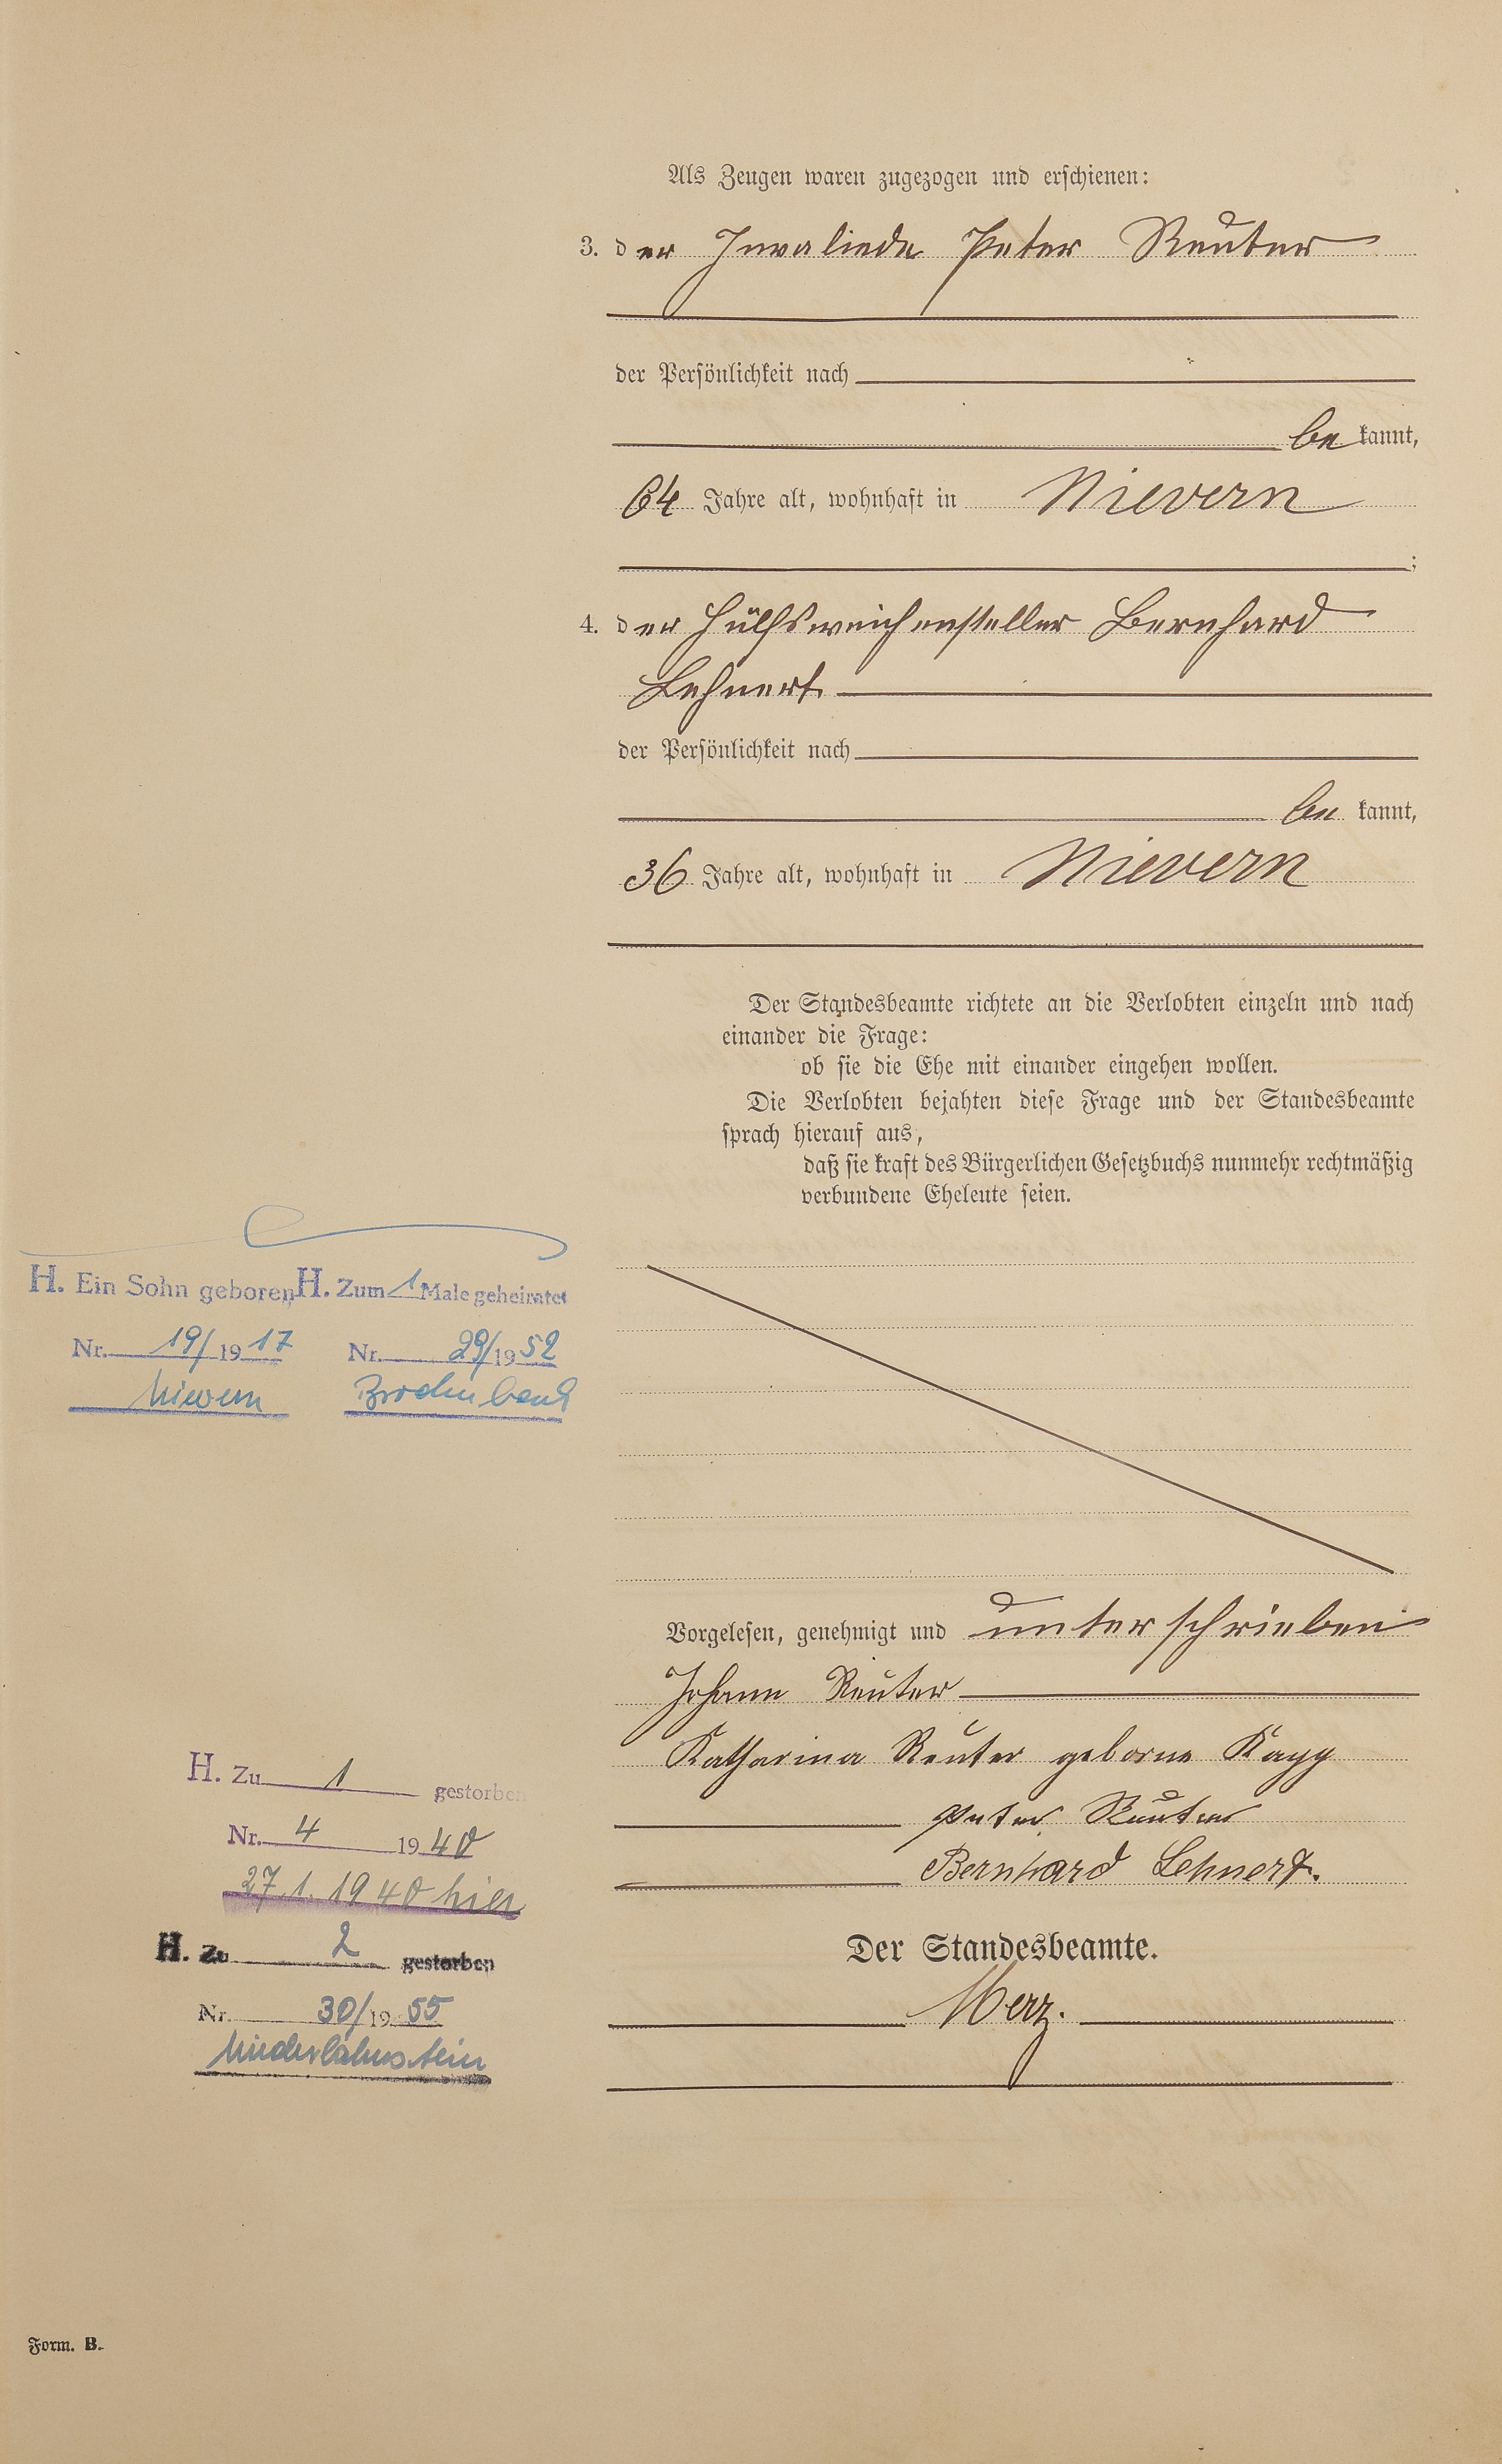 Als Zeugen waren zugezogen und erschienen:
3. der Invaliede Peter Reuter
der Persönlichkeit nach
be kannt,
64 Jahre alt, wohnhaft in Nievern
;
4. der Hülfsweichensteller Bernhard
Lehnert
der Persönlichkeit nach
be kannt,
36 Jahre alt, wohnhaft in Nievern
Der Standesbeamte richtete an die Verlobten einzeln und nach
einander die Frage:
ob sie die Ehe mit einander eingehen wollen.
Die Verlobten bejahten diese Frage und der Standesbeamte
sprach hierauf aus,
daß sie kraft des Bürgerlichen Gesetzbuchs nunmehr rechtmäßig
verbundene Eheleute seien.
H. Ein Sohn geboren
Nr. 19/1917
Nievern
H. Zum 1 Male geheiratet
Nr. 29/1952
Vorgelesen, genehmigt und unterschrieben
Johann Reuter
Katharina Reuter geborne Kapp
Peter Reuter
Bernhard Lehnert.
Der Standesbeamte.
Merz.
H. Zu 1 gestorben
Nr. 4 1940
27.1.1940 hier
H. Zu 2 gestorben
Nr. 30/1955
Niederlahnstein
Form. B.